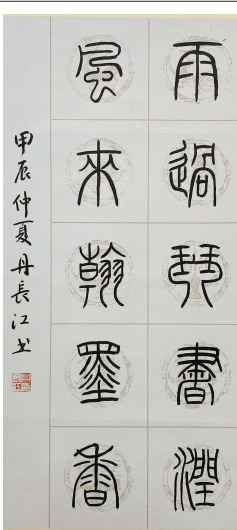 雨過琴書潤
風來翰墨香
甲辰仲夏丹長江书